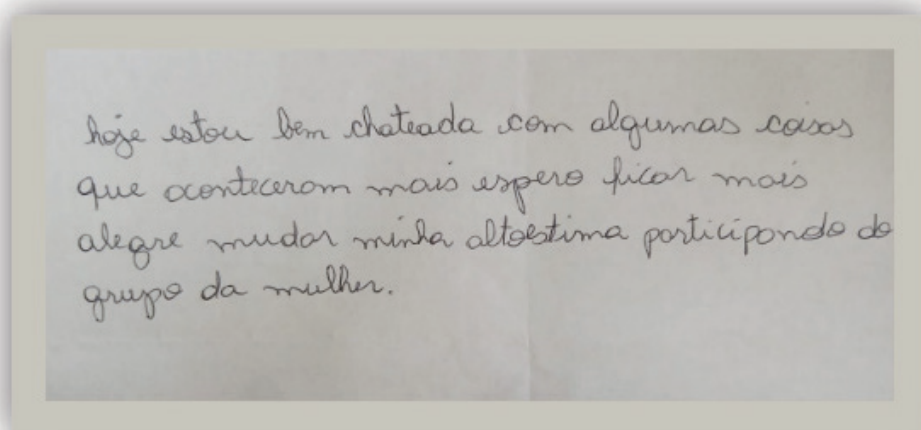 hoje estou bem chateada com algumas coisas
que aconteceram mais espero ficar mais
alegre mudar minha altoestima participando do
grupo da mulher.